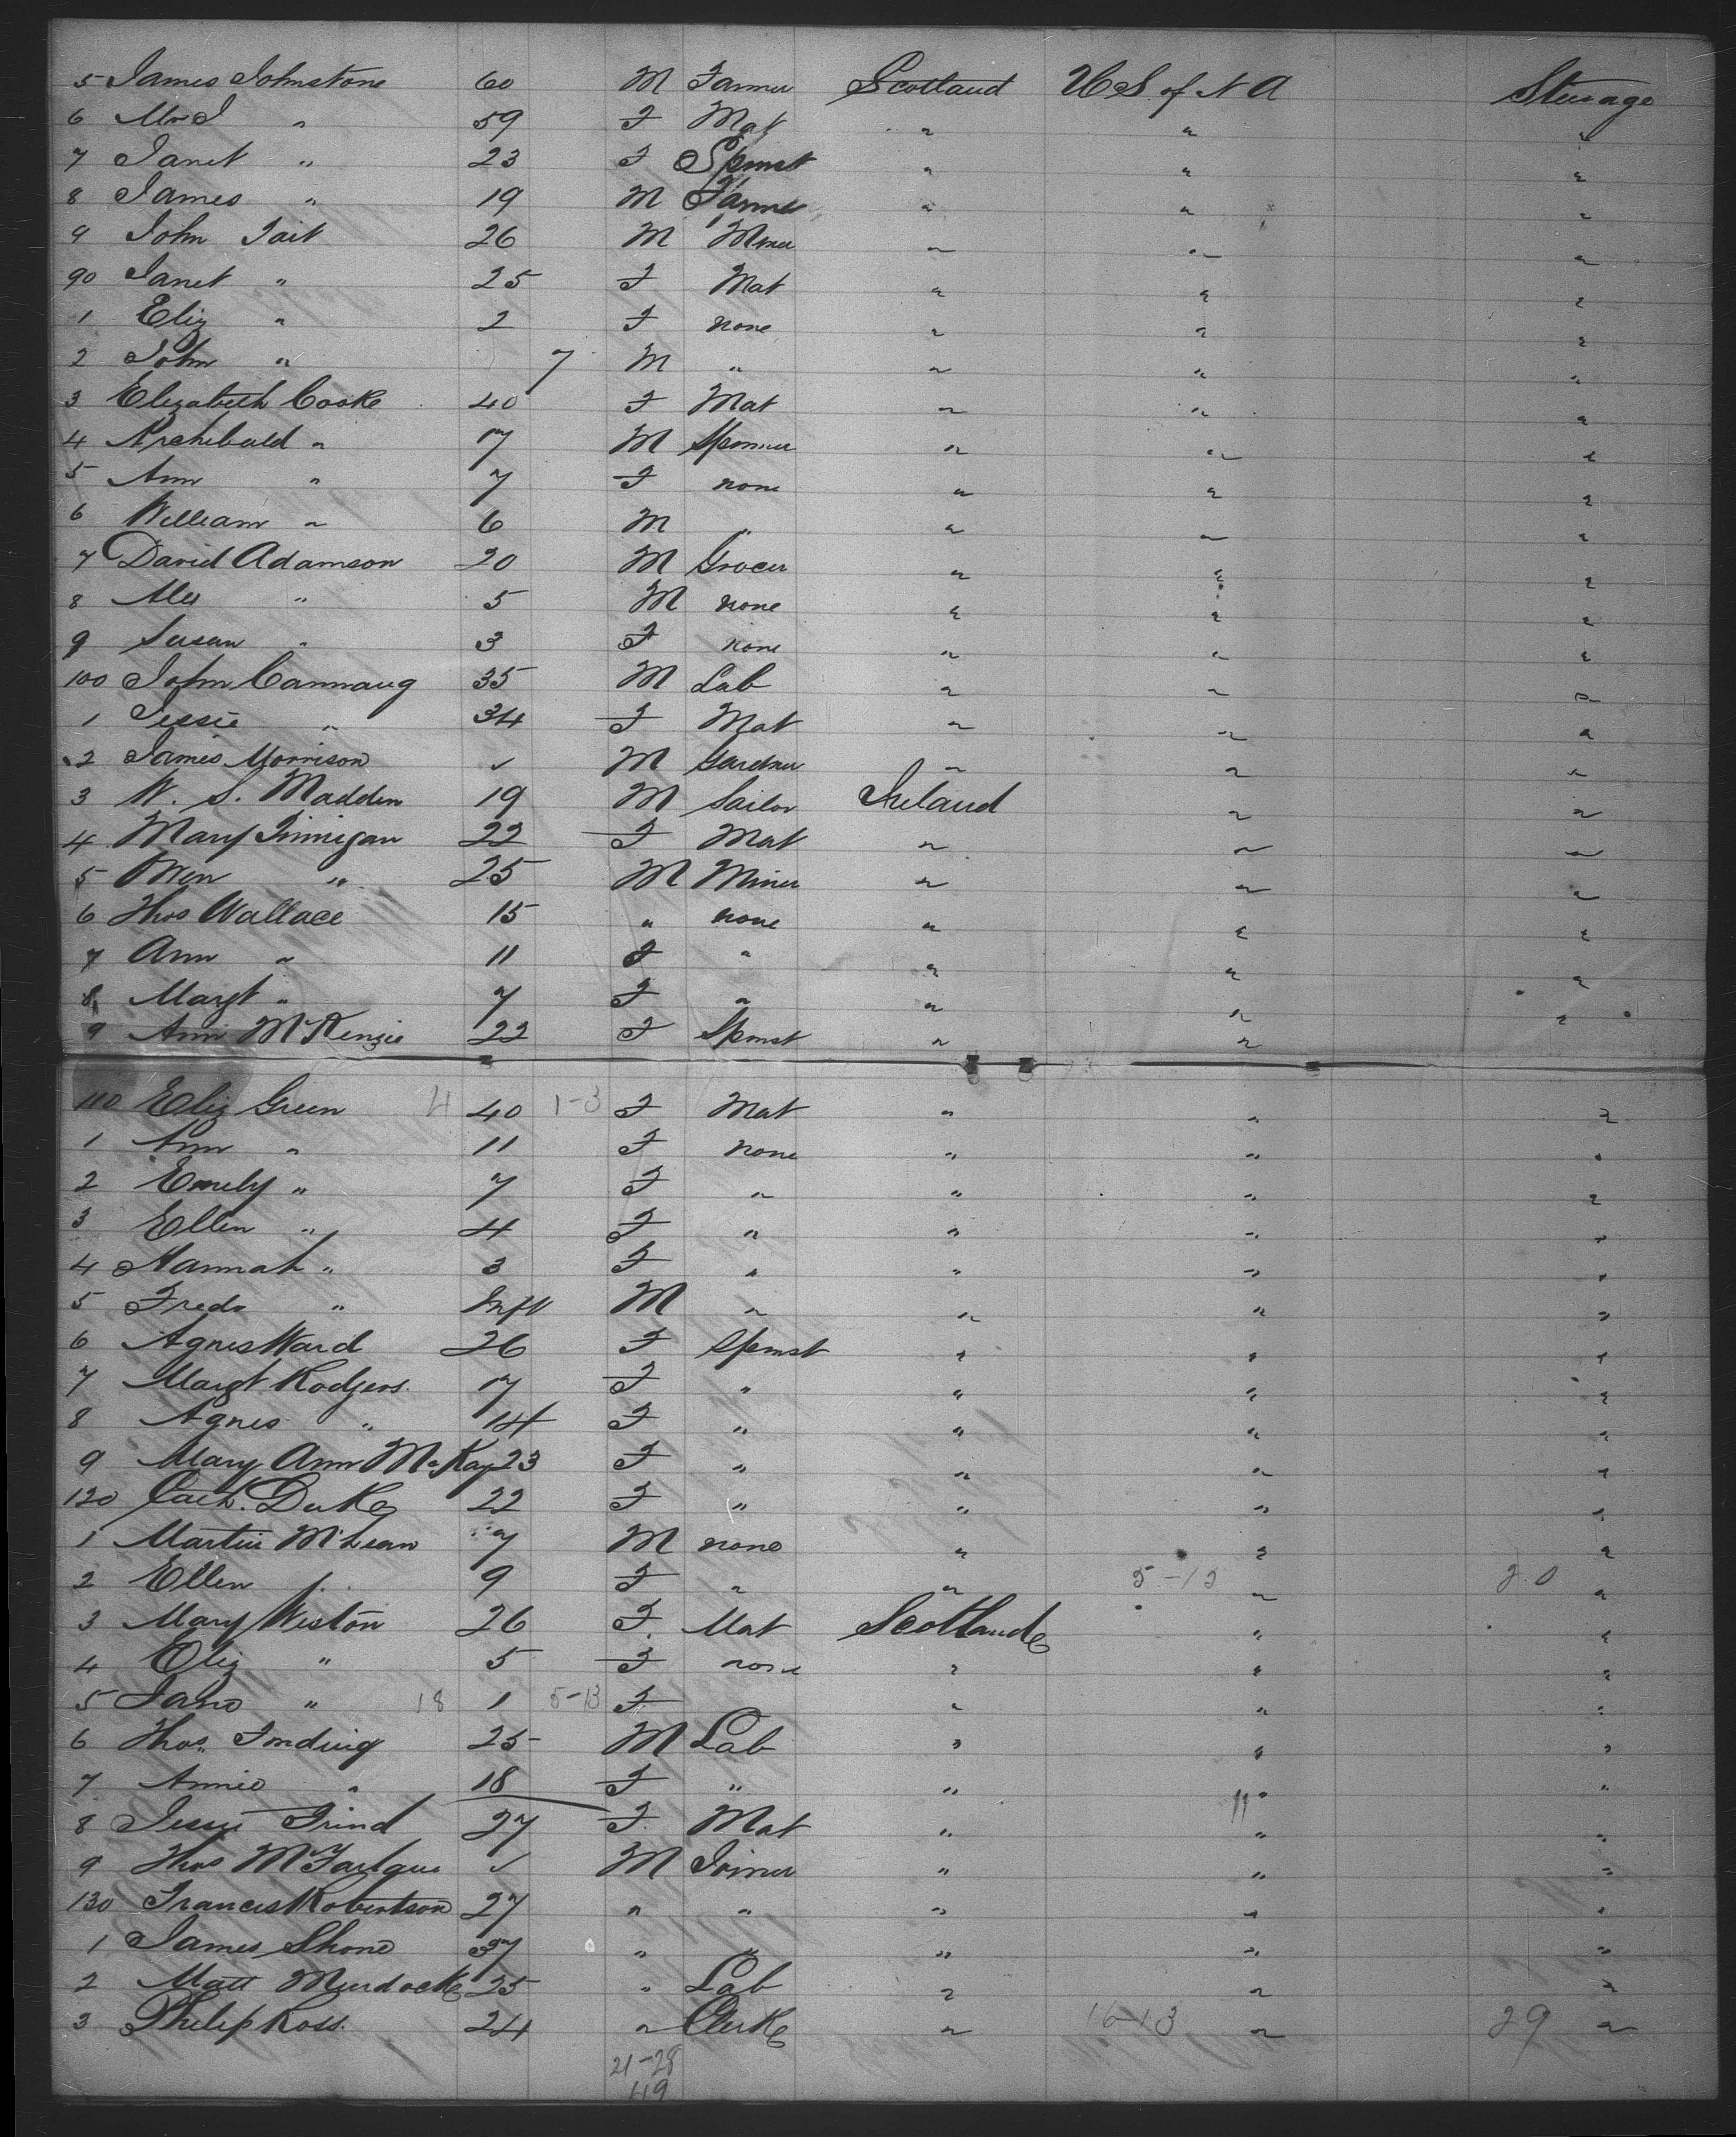 5 James Johnstone 60 M Farmer Scotland U S of N A Steerage
6 Mrs J " 59 F Mat " " "
7 Janet " 23 F Spinst " " "
8 James " 19 M Farmer " " "
9 John Tait 26 M Miner " " "
90 Janet " 25 F Mat " " "
1 Eliz " 2 F none " " "
2 John " 7 M " " " "
3 Elizabeth Cooke 40 F Mat " " "
4 Archibald " 17 M " " "
5 Ann " 7 F none " " "
6 William " 6 M " " " "
7 David Adamson 20 M Grocer " " "
8 Alex " 5 M none " " "
9 Susan " 3 F none " " "
100 John Cannaug 35 M Lab " " "
1 Jessie " 34 F Mat " " "
2 James Morrison ✓ M Gardner " " "
3 W. S. Madden 19 M Sailor Ireland " "
4 Mary Finnigan 22 F Mat " " "
5 Owen " 25 M Miner " " "
6 Thos Wallace 15 " none " " "
7 Ann " 11 F " " " "
8 Margt " 7 F " " " "
9 Ann McKenzie 22 F Spinst " "
110 Eliz Green 4 40 1-3 F Mat " " "
1 Ann " 11 F none " " "
2 Emily " 7 F " " " "
3 Ellen " 4 F " " " "
4 Hannah " 3 F " " " "
5 Fredk " Inft M " " " "
6 Agnes Ward 26 F Spinst " " "
7 Margt Rodgers 17 F " " " "
8 Agnes " 14 F " " " "
9 Mary Ann McKay 23 F " " " "
120 Cath. Duke 22 F " " " "
1 Martin McLean 7 M none " " "
2 Ellen " 9 F " " 5-13 " 20 "
3 Mary Weston 26 F Mat Scotland " "
4 Eliz " 5 F none " " "
5 Jane " 18 1 5-13 F " " "
6 Thos. 25 M Lab " " "
7 Annie " 18 F " " " "
8 Jessie Frind 27 F Mat " " "
9 Thos ✓ M Joiner " " "
130 Francis Robertson 27 " " " " "
1 James Shone 37 " " " " "
2 Matt Murdock 25 " Lab " " "
3 Philip Ross 24 " Clerk " 16-13 " 29 "
21-28
49